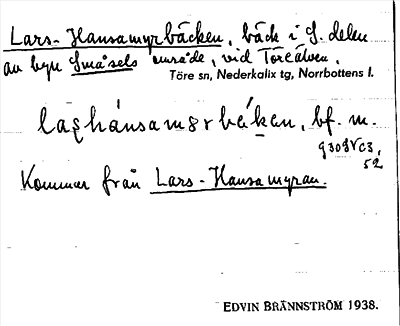 Lars-Hansamyrbäcken, bäck i S. delen
av byn Småsels område, vid Töreälven.
Töre sn, Nederkalix tg, Norrbottens l.
bf. m.
Kommer från Lars-Hansamyran.
EDVIN BRÄNNSTRÖM 1938.